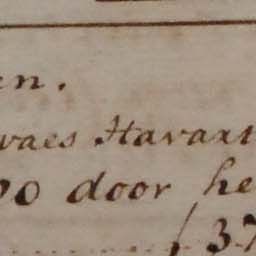 en.
vaes Havart
00 door he
f 37